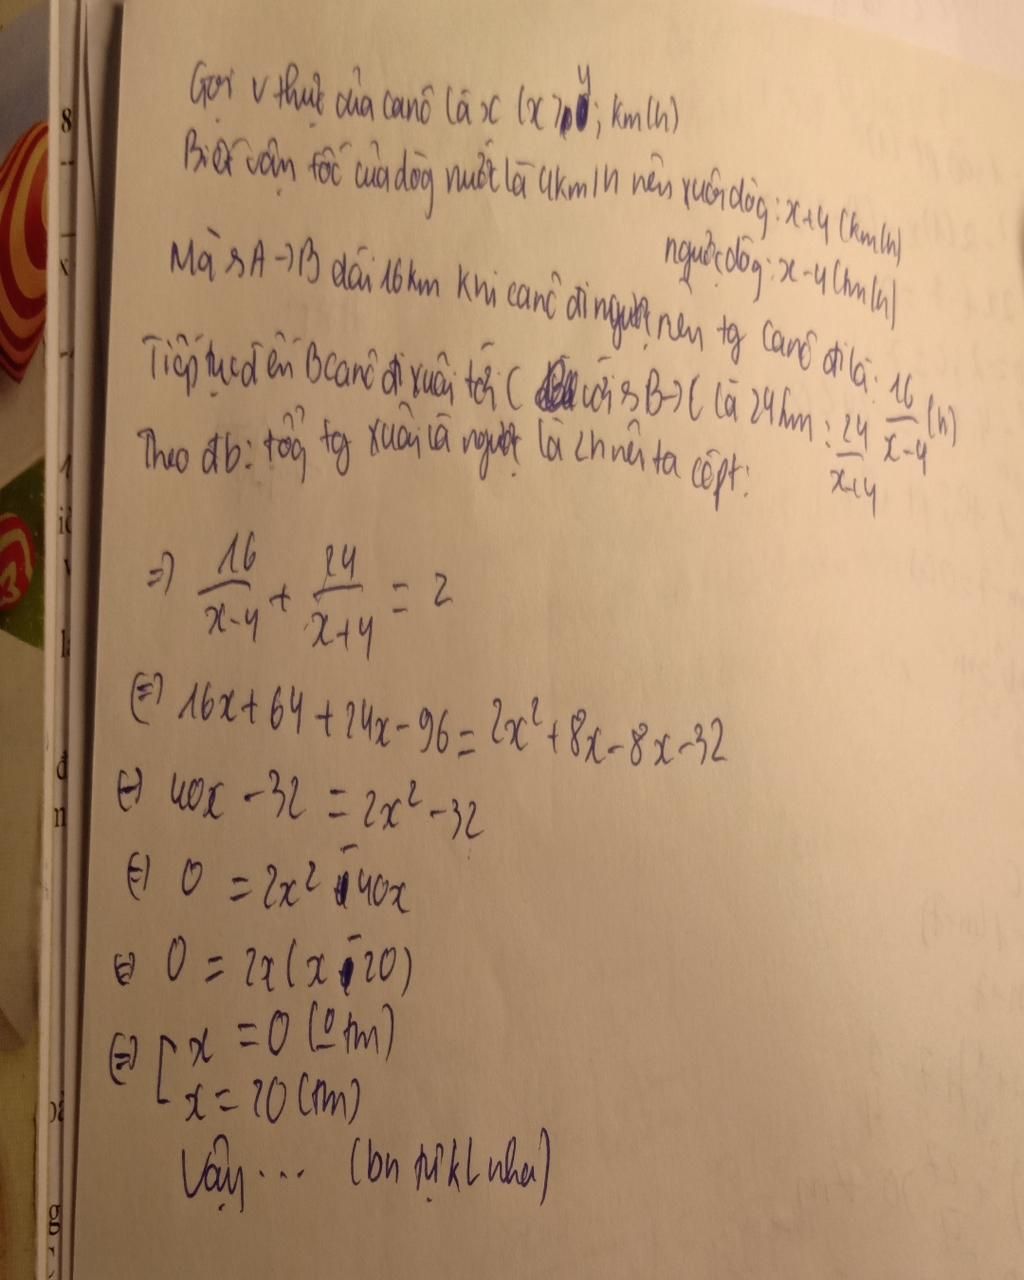 Gọi v thực của canô là x (x > 4; km/h)
Biết vận tốc của dòg nước là 4km/h nên xuôi dòg: x+4 (km/h)
ngược dòg: x-4 (km/h)
Mà s A→B dài 16km khi canô đi ngược nên tg canô đi là: 16/(x-4) (h)
Tiếp tục đến B canô đi xuôi tới C với s B→C là 24km: 24/(x+4)
Theo đb: tổg tg xuôi là ngược là 2h nên ta có pt:
=> 16/(x-4) + 24/(x+4) = 2
(=) 16x + 64 + 24x - 96 = 2x² + 8x - 8x - 32
(=) 40x - 32 = 2x² - 32
(=) 0 = 2x² - 40x
(=) 0 = 2x(x - 20)
(=) [ x = 0 (o tm)
x = 20 (tm)
Vậy... (bn tự kl nha)
8
1